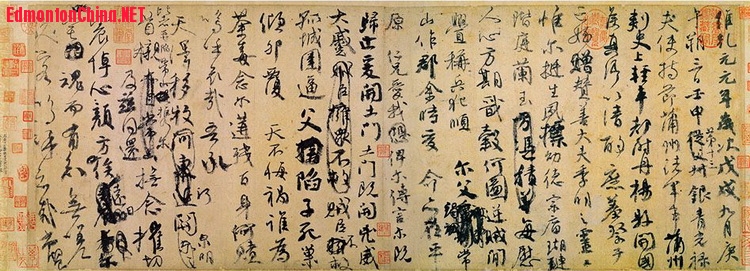 EdmontonChina.NET
維乾元元年歲次戊戌九月庚
午朔三日壬申第十三叔銀青光祿
夫使持節蒲州諸軍事蒲州
刺史上輕車都尉丹楊縣開國
侯真卿以清酌庶羞祭于
亡姪贈贊善大夫季明之靈曰
惟爾挺生夙標幼德宗廟瑚璉
階庭蘭玉每慰
人心方期戩穀何圖逆賊閒
釁稱兵犯順爾父竭誠常
山作郡余時受命亦在平
原仁兄愛我俾爾傳言爾既
歸止爰開土門土門既開凶威
大蹙賊臣不救
孤城圍逼父陷子死巢
傾卵覆天不悔禍誰為
荼毒念爾遘殘百身何贖
嗚呼哀哉吾承
天澤移牧河關泉明
比者再陷常山攜爾
首櫬及茲同還撫念摧切
震悼心顏方俟遠日
魂而有知無嗟
久客嗚呼哀哉尚饗